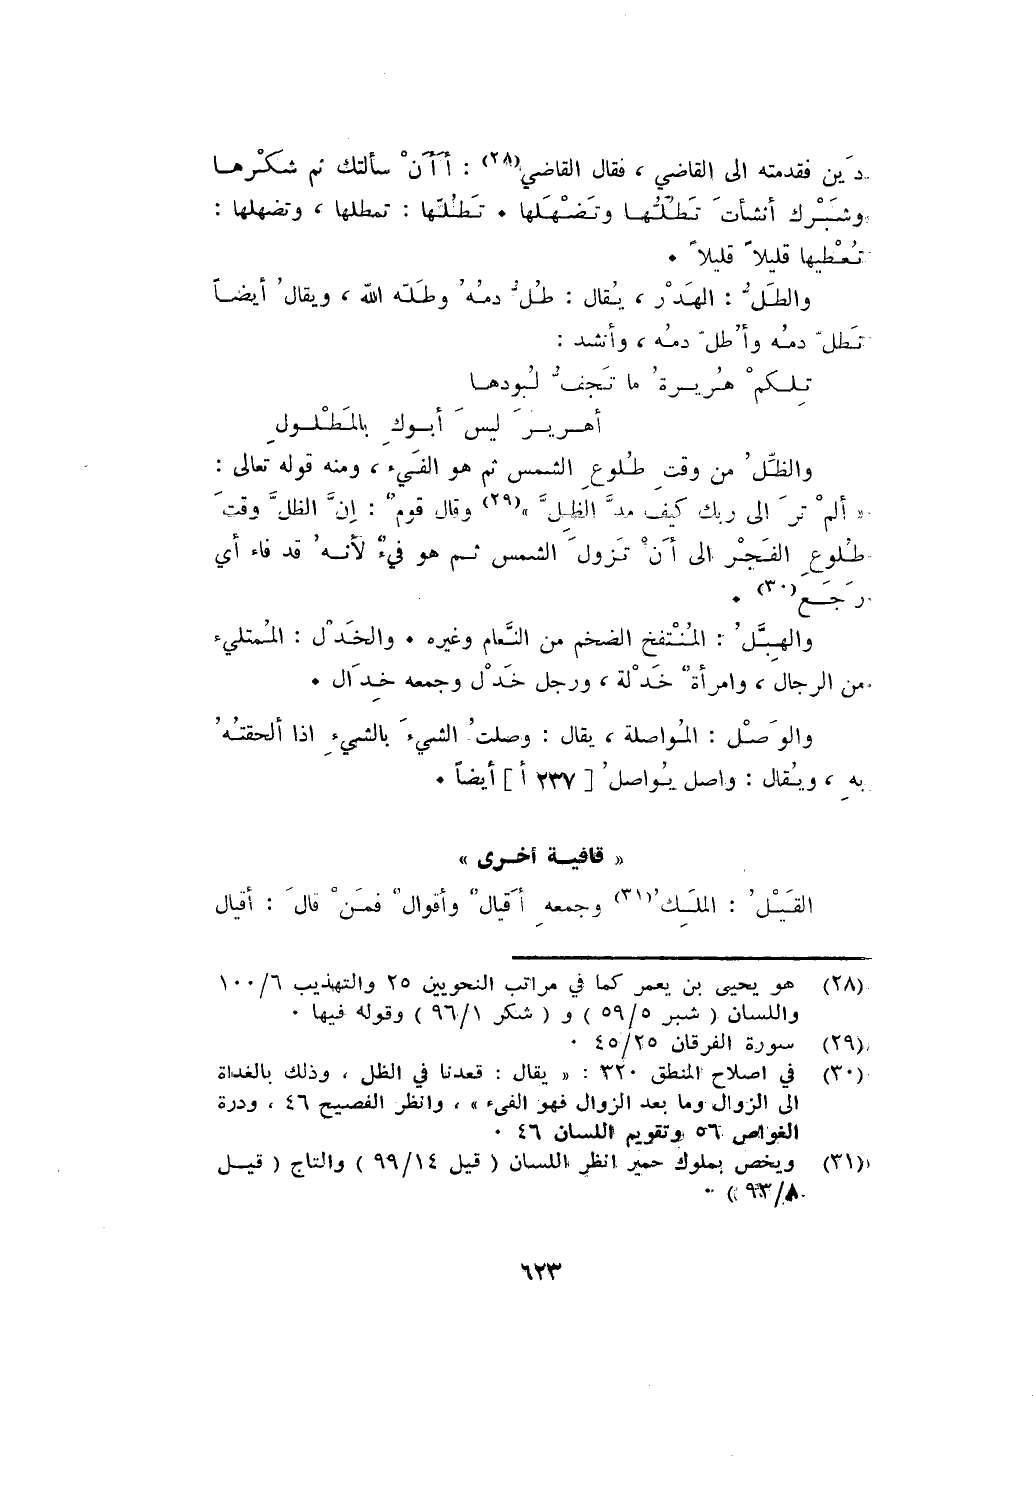 دَين فقدمته الى القاضي ، فقال القاضي(٢٨) : أَأَنْ سألتك ثم شكْرهـا
وشَبْرك أنشأتَ تَطُلُّهـا وتَضْهَلها • تَطُلّها : تمطلها ، وتضهلها :
تُعْطيها قليلاً قليلاً •
والطَلُّ : الهَدْر ، يُقال : طُلُّ دمهُ وطلّه الله ، ويقالُ أيضـاً
تَطلّ دمهُ وأُطلّ دمهُ ، وأنشد :
تِلـكمْ هُريـرةُ ما تَجفُّ لُبودهـا
أهـريـرَ ليسَ أبـوكِ بالمَطْلـولِ
والظِّلُ من وقتِ طُلوعِ الشمس ثم هو الفَيء ، ومنه قوله تعالى :
« ألمْ ترَ الى ربك كيف مدَّ الظِلَّ »(٢٩) وقال قومٌ : إنَّ الظلَّ وقتَ
طُلوعِ الفَجْر الى أنْ تَزولَ الشمس ثـم هو فيءٌ لأنـهُ قد فاء أي
رَجَـع(٣٠) •
والهِبَّلُ : المُنْتفخ الضخم من النَّعام وغيره • والخَدْل : المُمتليء
من الرجال ، وامرأةٌ خَدْلة ، ورجل خَدْل وجمعه خِدَال •
والوَصْل : المُواصلة ، يقال : وصلتُ الشيءَ بالشيءِ اذا ألحقتـهُ
بهِ ، ويُقال : واصل يُواصلُ [ ٢٣٧ أ ] أيضاً •
« قافيـة أخـرى »
القَيْلُ : الملَـِك(٣١) وجمعهِ أَقيالٌ وأقوالٌ فمَنْ قالَ : أقيال
(٢٨) هو يحيى بن يعمر كما في مراتب النحويين ٢٥ والتهذيب ٦/١٠٠
واللسان ( شبر ٥/٥٩ ) و ( شكر ١/٩٦ ) وقوله فيها •
(٢٩) سورة الفرقان ٢٥/٤٥ •
(٣٠) في اصلاح المنطق ٣٢٠ : « يقال : قعدنا في الظل ، وذلك بالغداة
الى الزوال وما بعد الزوال فهو الفىء » ، وانظر الفصيح ٤٦ ، ودرة
الغواص ٥٦ وتقويم اللسان ٤٦ •
(٣١) ويخص بملوك حمير انظر اللسان ( قيل ١٤/٩٩ ) والتاج ( قيـل
٨/٩٣ ) •
٦٢٣